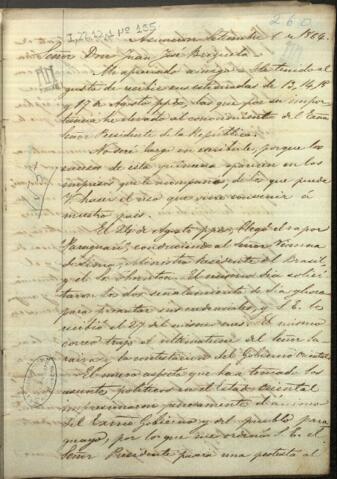 260
I, 22, 12, 1 Nº 195
Asuncion Setiembre 1º de 1864.
Señor Don Juan José Brizuela
gusto de recibir sus estimadas de 13, 14, 18
y 17 de Agosto ppdo, las que por su impor
tancia he elevado al conocimiento del Exmo
Señor Presidente de la República.
No seré largo en escribirle, porque los
sucesos de esta quincena aparecen en los
impresos que le acompaño, de los que puede
V. hacer el uso que viere convenir á
nuestro pais.
El 24 de Agosto ppdo. llegó el vapor
Paraguarí, conduciendo al Señor Vianna
de Lima, Ministro Residente del Brasil,
y el El mismo dia solici
taron los dos señalamiento de dia y hora
para presentar sus credenciales, y S. E. los
recibió el 27 del mismo mes. El mismo
correo trajo el ultimatum del Señor Sa
raiva y la contestacion del Gobierno Oriental
El nuevo aspecto que ha tomado los
asuntos políticos en el Estado Oriental
impresionaron nuevamente el ánimo
del Exmo Gobierno y del pueblo para
guayo, por lo que me ordenó S. E. el
Señor Presidente pasar una protesta al